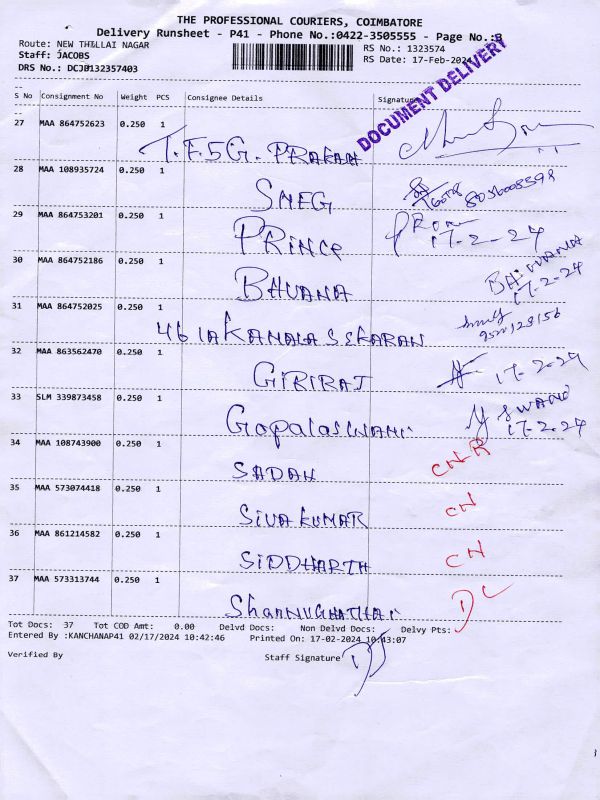 THE PROFESSIONAL COURIERS, COIMBATORE
Delivery Runsheet - P41 - Phone No.:0422-3505555 - Page No.:3
Route: NEW THILLAI NAGAR
RS No.: 1323574
Staff: JACOBS
RS Date: 17-Feb-2024
DRS No.: DCJ0132357403
DOCUMENT DELIVERY
S No Consignment No Weight PCS Consignee Details Signature
27 MAA 864752623 0.250 1
T.F.5G. PRAKAN
28 MAA 108935724 0.250 1
SNEG 8056008598
29 MAA 864753201 0.250 1
PRINCE 17-2-24
30 MAA 864752186 0.250 1
BHUANA BHUVANA 17-2-24
31 MAA 864752025 0.250 1
46 1A KAMALA SEKARAN
32 MAA 863562470 0.250 1
GIRIRAJ 17-2-24
33 SLM 339873458 0.250 1
GOPALASWAMI 17-2-24
34 MAA 108743900 0.250 1
SADAN CNR
35 MAA 573074418 0.250 1
SIVA KUMAR CN
36 MAA 861214582 0.250 1
SIDDHARTH CN
37 MAA 573313744 0.250 1
DL
Tot Docs: 37 Tot COD Amt: 0.00 Delvd Docs: Non Delvd Docs: Delvy Pts:
Entered By :KANCHANAP41 02/17/2024 10:42:46 Printed On: 17-02-2024 10:43:07
Verified By Staff Signature